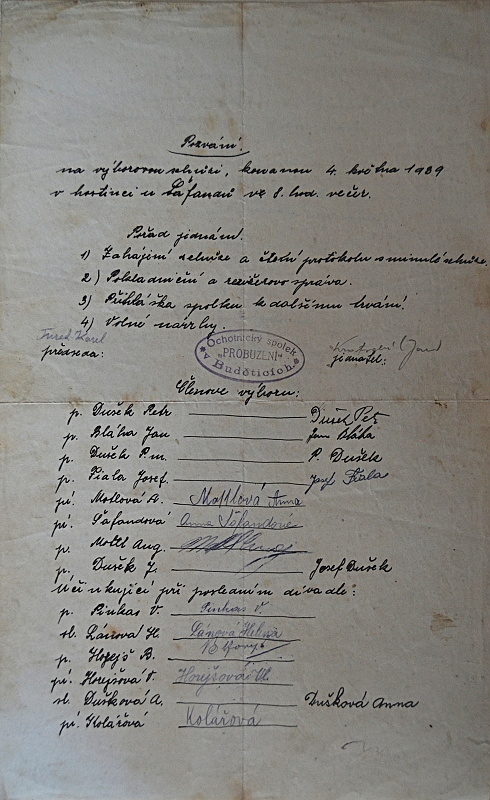 Pozvání.
na výborovou schůzi, konanou 4. května 1939
v hostinci u Šafandů ve 8. hod. večer.
Pořad jednání.
1) Zahájení schůze a čtení protokolu z minulé schůze.
2) Pokladniční a revisorova zpráva.
3) Přihláška spolku k dalšímu trvání.
4) Volné návrhy.
Ochotnický spolek „PROBUZENÍ" v Buděticích.
předseda: jednatel:
Členové výboru:
p. Dušek Petr Dušek Petr
p. Bláha Jan Jan Bláha
p. Dušek P. m. P. Dušek
p. Fiala Josef. Josef Fiala
pí. Motlová A. Mottlová Anna
pí. Šafandová Anna Šafandová
p. Mottl Aug.
p. Dušek J. Josef Dušek
Účinkující při posledním divadle:
p. Pinkas V. Pinkas V.
sl. Lánová H. Lánová Helena
p. B.
pí. Horejšová
sl. Dušková A. Dušková Anna
pí. Kolářová Kolářová